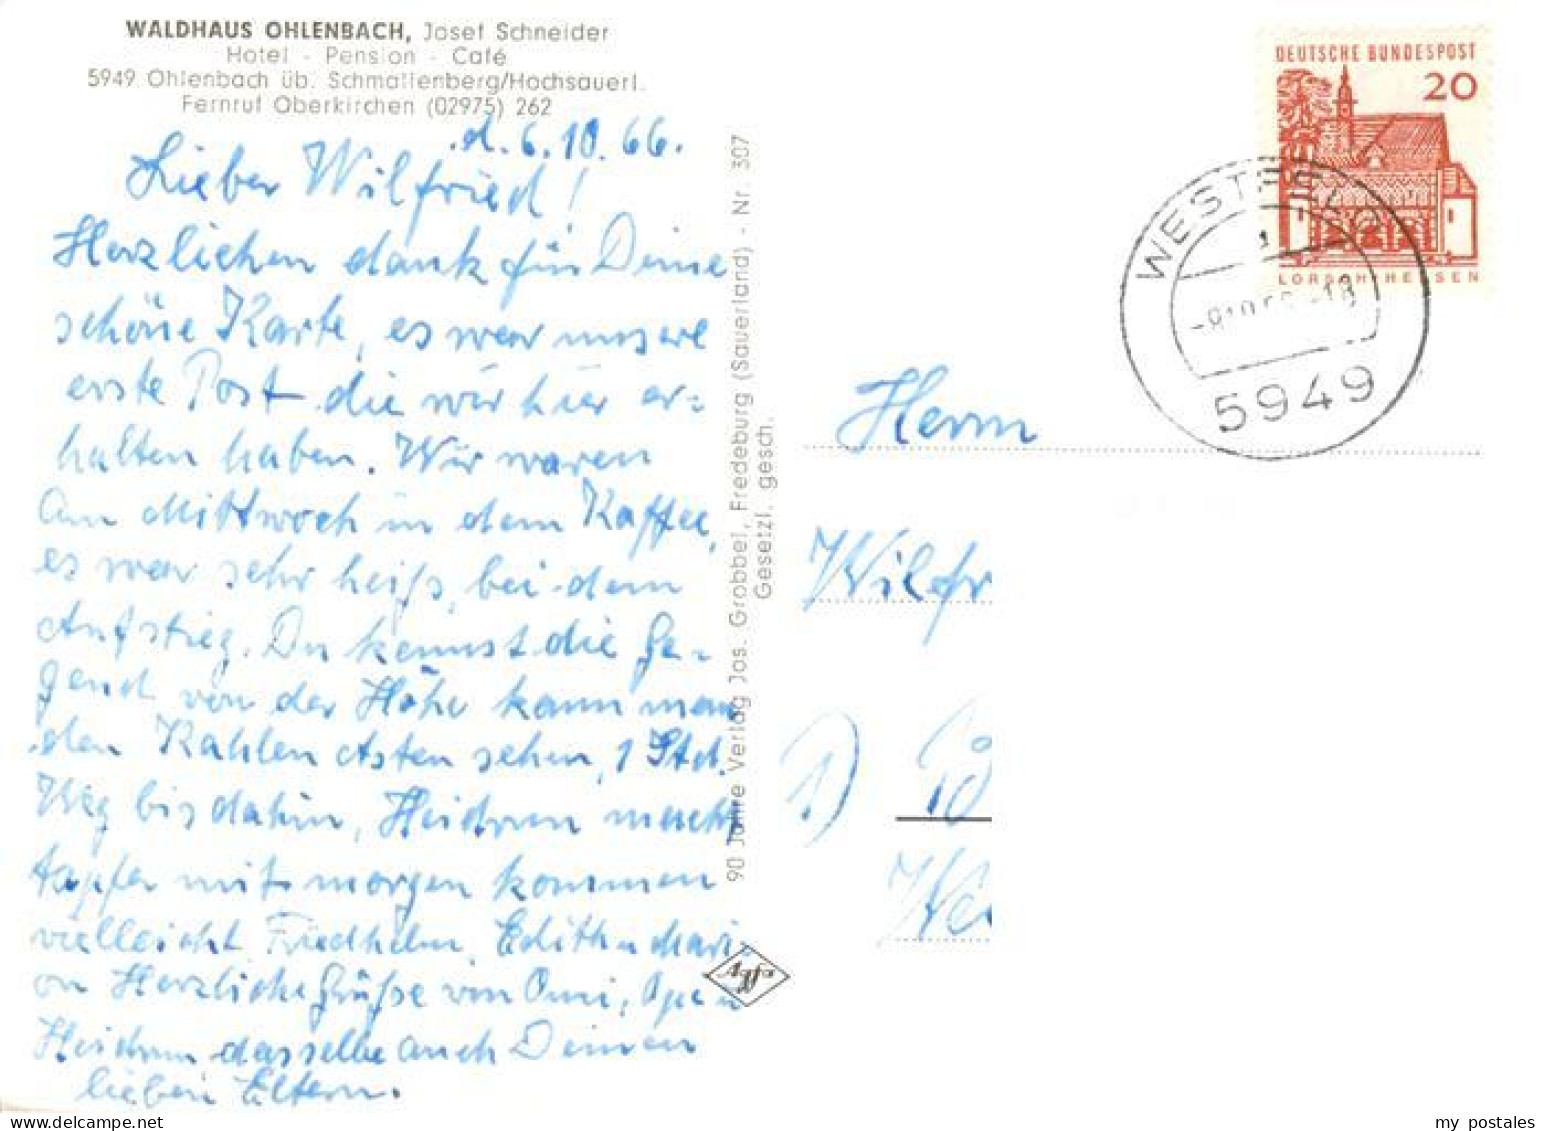 WALDHAUS OHLENBACH, Josef Schneider
Hotel - Pension - Café
5949 Ohlenbach üb. Schmallenberg/Hochsauerl.
Fernruf Oberkirchen (02975) 262
d. 6.10.66.
Lieber Wilfried!
Herzlichen dank für Deine
schöne Karte, es war unsere
erste Post die wir hier er=
halten haben. Wir waren
Am Mittwoch in dem Kaffee,
es war sehr heiß, bei dem
Aufstieg. Du kennst die Ge-
gend von der Höhe kann man
den Kahlen Asten sehen, 1 Std.
Weg bis dahin, Heidrun macht
tapfer mit morgen kommen
vielleicht Friedhelm, Edith u Mari-
on Herzliche Grüße von Omi, Opa u
Heidrun dasselbe auch Deinen
lieben Eltern.
90 Jahre Verlag Jos. Grobbel, Fredeburg (Sauerland) - Nr. 307
Gesetzl. gesch.
Agfa
DEUTSCHE BUNDESPOST
20
LORSCH-HESSEN
WESTFELD
1
5949
Herrn
Wilfr
my postales